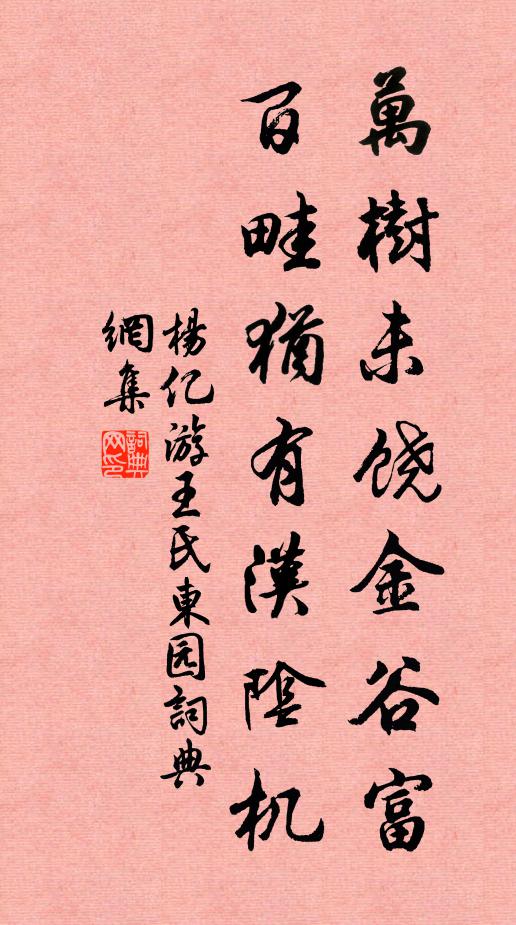 萬樹未饶金谷富
百畦猶有漢陰机
楊亿游王氏東园詞典
網集
詞典网印